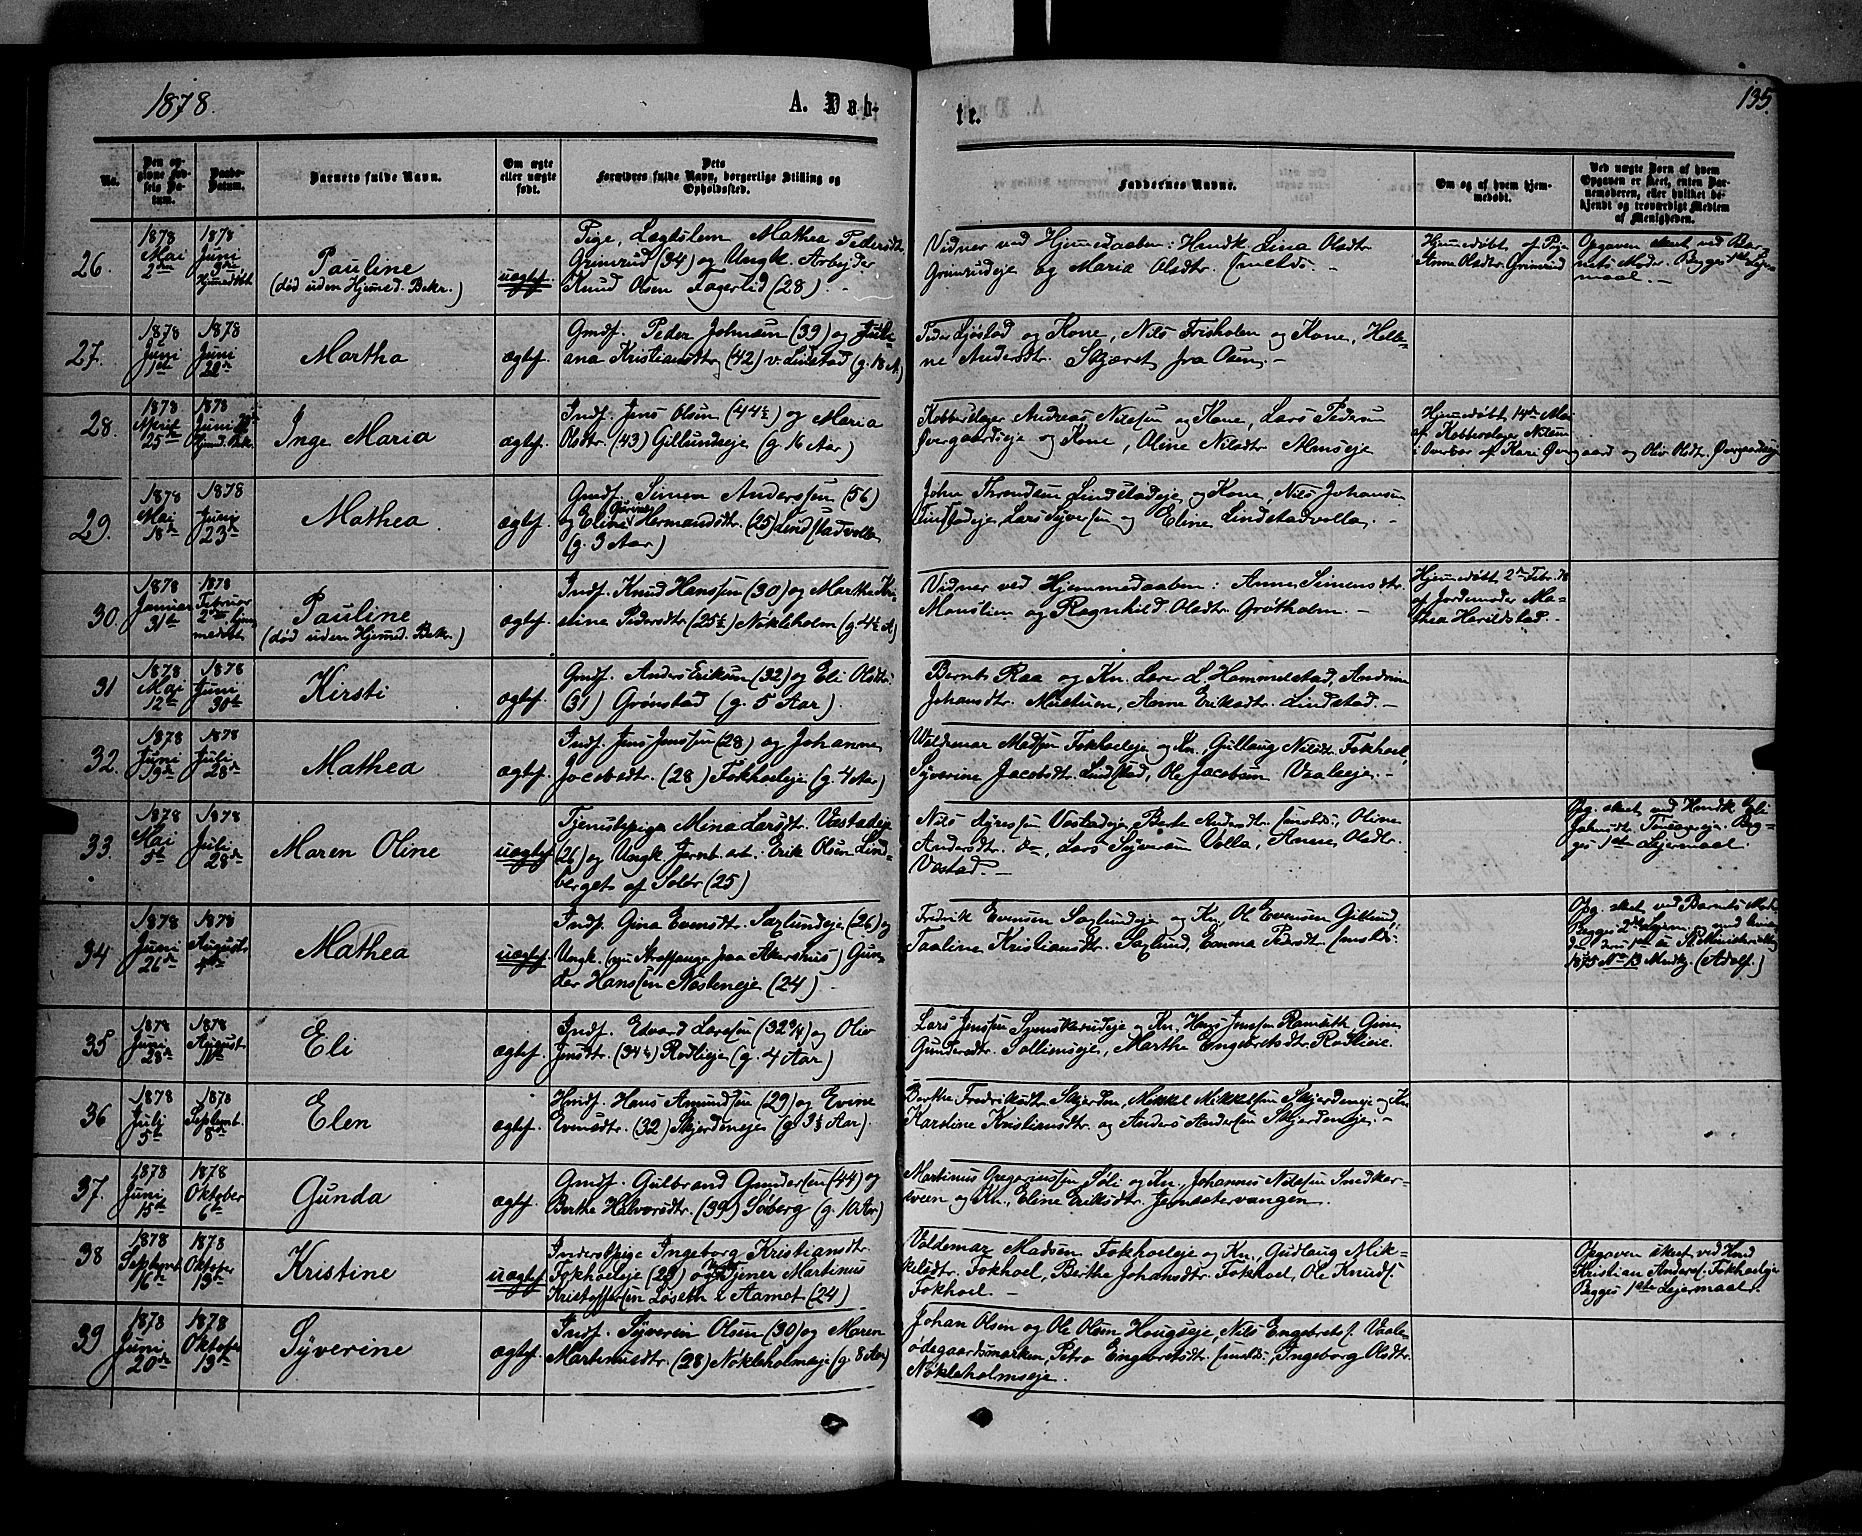 1878.
A. Døb-
te.
135.
No.
Den op-
givne Fød-
sels Da-
tum.
Daabs-
Datum.
Barnets fulde Navn.
Om ægte
eller uægte
født.
Dets
Forældres fulde Navn, borgerlige Stilling og
Opholdssted.
Faddernes Navne.
Om og af hvem hjem-
medøbt.
Ved uægte Børn af hvem
Opgaven er skeet, enten Bar-
nemoderen, eller hvilket be-
kjendt og troværdigt Medlem
af Menigheden.
26.
1878
Mai
2den
1878
Juni
Hjemmedøbt
Pauline
(død uden Hjemd. Bekr.)
uægtef.
Pige, Lægdslem Mathea Pedersdtr
Grimsrud (34) og Ungk. Arbejder
Knud Olsen Fagerlid (28). -
Vidner ved Hjemmedaaben: Huusk. Lina Olsdtr.
Grimsrudeje og Maria Olsdtr. smstds. -
Hjemmedøbt af Pige
Anne Olsdtr. Grimsrud
Opgaven skeet ved Bar-
nets Moder. Begges 1ste Leier-
maal. -
27.
1878
Juni
1ste
1878
Juni
Martha
ægtef.
Gmdf. Peder Johnsen (39) og Juli-
ana Kristiansdtr (42) v. Lindstad (g. 18 A)
Peder Løstad og Kone, Nils Frisholen og Kone, Hele-
ne Andersdtr. Skjæret fra Osen. -
28.
1878
April
25de
1878
Juni
Hjemd. Bekr.
Inge Maria
ægtef.
Indf. Jens Olsen (44½) og Maria
Olsdtr. (43) Gillundseje (g. 16 Aar)
Kobberslager Andreas Nilsen og Kone, Lars Pedersen
Øvergaardseje og Kone, Oline Nilsdtr. Almseje
Hjemmedøbt 14de Mai
af Kobberslager Nilsen
i Overvær af Kari Øvergaard og Oliv Olsdtr. Øvergaardseje
29.
1878
Mai
18de
1878
Juni
23de
Mathea.
ægtef.
Gmdf. Simen Anderssen (56)
og Eline Hermandsdtr. (25) Lindstadvolla
(g. 3 Aar)
John Throndsen Lindstadeje og Kone, Nils Johansen
Lindstadeje, Lars Syversen og Eline Lindstadvolla. -
30.
1878
Januar
31te
1878
Februar
2den Hjem-
medøbt
Pauline
(død uden Hjemd. Bekr.)
ægtef.
Indf. Knud Hanssen (30) og Martha Kri-
stine Pedersdtr. (25½) Nøkleholm (g. 4½ A)
Vidner ved Hjemmedaaben: Anne Simensdtr.
Monslien og Ragnhild Olsdtr. Grøtholm. -
Hjemmedøbt 2den Febr. 78
af Jordemoder Ma-
thea Harildstad. -
31
1878
Mai
12te
1878
Juni
30te
Kirsti
ægtef.
Gmdf. Anders Eriksen (32) og Eli Olsdtr.
(31) Grønstad (g. 5 Aar).
Bernt Raa og Kn. Lærer L. Hammelstad, Andrine
Johansdtr. Mustuen, Anne Eriksdtr. Lindstad. -
32.
1878
Juni
19de
1878
Juli
28de
Mathea
ægtef.
Indf. Jens Jenssen (28) og Johanne
Jacobsdtr. (28) Fokhoeleje (g. 4 Aar)
Waldemar Madsen Fokhoeleje og Kn., Gullaug Nilsdtr. Fokhoel,
Syverine Jacobsdtr. Lindstad, Ole Jacobsen Vaaleeje. -
33.
1878
Mai
5te
1878
Juli
28de
Maren Oline
uægtef.
Tjenestepige Mina Larsdtr. Vestadeje
(26) og Ungk. Jernb. arb. Erik Olsen Lind-
berget af Solør (25)
Nils Vestadeje, Berte Andersdtr. smstds., Oline
Andersdtr. do, Lars Syversen Volla, Anne Olsdtr.
Vestad. -
Opg. skeet ved Huusk. Eli
Johnsdtr. Beg-
ges 1ste Lejermaal.
34
1878
Juni
26de
1878
August
4de
Mathea
uægtef.
Indf. Gina Evensdt. Saglundeje (26) og
Ungk. (nu Straffange paa Akershus) Gun-
der Hanssen Næsteneje (24)
Fredrik Evensen Saglundeje og Kn., Ol. Evensen Gillund,
Taaline Kristiansdtr. Saglund, Emma Pedersdtr. smstds. -
Opg. skeet ved Barnets Moder
Begges 2det Lejerm.
1875 No 13 Mandkj. (Adolf.)
35
1878
Juni
28de
1878
August
11te
Eli
ægtef.
Indf. Edvard Larssen (32¾) og Oliv
Jensdtr. (34½) Rødlieje (g. 4 Aar)
Lars Jenssen Svenskerudeje og Kn., Hans Jenssen Ramsæth, Gina
Gundersdtr. Solliemseje, Marthe Engebretsdtr. Rødlieie.
36
1878
Juli
5te
1878
Septemb.
8de
Elen
ægtef.
Hmdf. Hans Amundsen (29) og Evine
Evensdtr. (32) Skjerdeneje (g. 3½ Aar).
Berthe Fredriksdtr. Skjerden, Mikkel Mikkelsen Skjerdeneje og Kn
Karoline Kristiansdtr. og Anders Andersen Skjerdeneje. -
37.
1878
Juni
15de
1878
Oktober
6te
Gunda
ægtef.
Gmdf. Gulbrand Gundersen (44) og
Berthe Halvorsdtr. (39) Søberg (g. 10 Aar)
Martinus Gregoriussen Søli og Kn., Johannes Nilsen Smedker-
sveen og Kn., Eline Eriksdtr. Jemsætervangen.
38
1878
Septemb.
16de
1878
Oktober
13de
Kristine
uægtef.
Inderstpige Ingeborg Kristiansdtr.
Fokhoeleje (23) og Tjener Martinus
Kristoffersen Løseth i Aamot (24)
Valdemar Madsen Fokhoeleje og Kn., Gudlaug Mik-
kelsdtr. Fokhoel, Berthe Johansdtr. Fokhoel, Ole Knuds.
Fokhoel. -
Opgaven skeet ved Huusmd
Kristian Anders. Fokhoeleje
Begges 1ste Lejermaal.
39
1878
Juni
20de
1878
Oktober
13de
Syverine
ægtef.
Indf. Syverin Olsen (30) og Maren
Martinusdtr. (28) Nøkleholmseje (g. 8 Aar)
Johan Olsen og Ole Olsen Hougseje, Nils Engebrets. Vaale-
ødegaardsmarken, Petra Engebretsdtr. smstds., Ingeborg Olsdtr.
Nøkleholmseje.